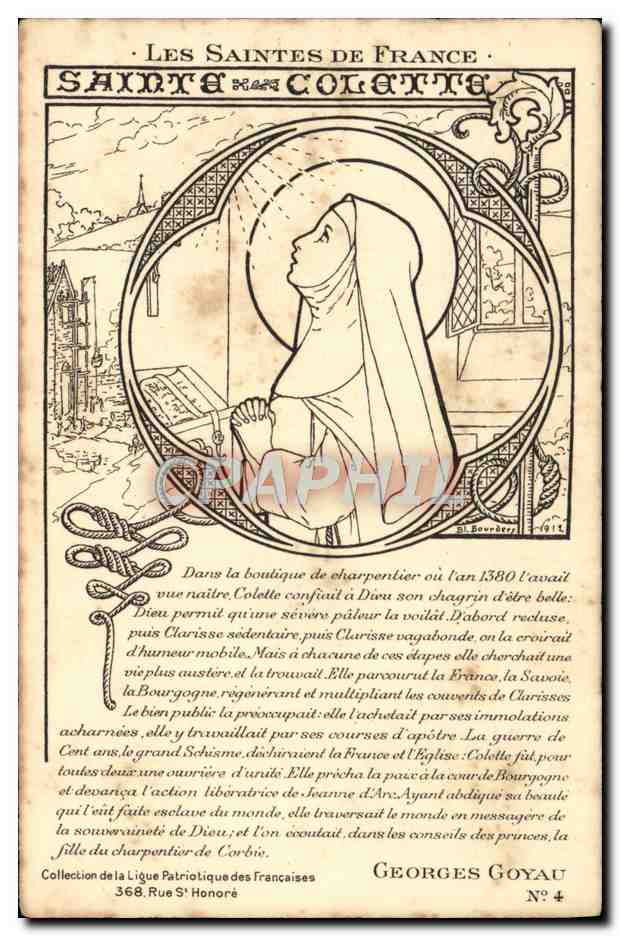 · LES SAINTES DE FRANCE ·
SAINTE COLETTE
CPAPHIL
Bl. Bourdery 1912
Dans la boutique de charpentier où l'an 1380 l'avait
vue naître, Colette confiait à Dieu son chagrin d'être belle:
Dieu permit qu'une sévère pâleur la voilât. D'abord recluse,
puis Clarisse sédentaire, puis Clarisse vagabonde, on la croirait
d'humeur mobile. Mais à chacune de ces étapes elle cherchait une
vie plus austère, et la trouvait. Elle parcourut la France, la Savoie,
la Bourgogne, régénérant et multipliant les couvents de Clarisses
Le bien public la préoccupait: elle l'achetait par ses immolations
acharnées, elle y travaillait par ses courses d'apôtre. La guerre de
Cent ans, le grand Schisme, déchiraient la France et l'Eglise: Colette fut, pour
toutes deux, une ouvrière d'unité. Elle prêcha la paix à la cour de Bourgogne
et devança l'action libératrice de Jeanne d'Arc. Ayant abdiqué sa beauté
qui l'eût faite esclave du monde, elle traversait le monde en messagère de
la souveraineté de Dieu; et l'on écoutait, dans les conseils des princes, la
fille du charpentier de Corbie.
GEORGES GOYAU
Collection de la Ligue Patriotique des Françaises
368, Rue St Honoré
No 4